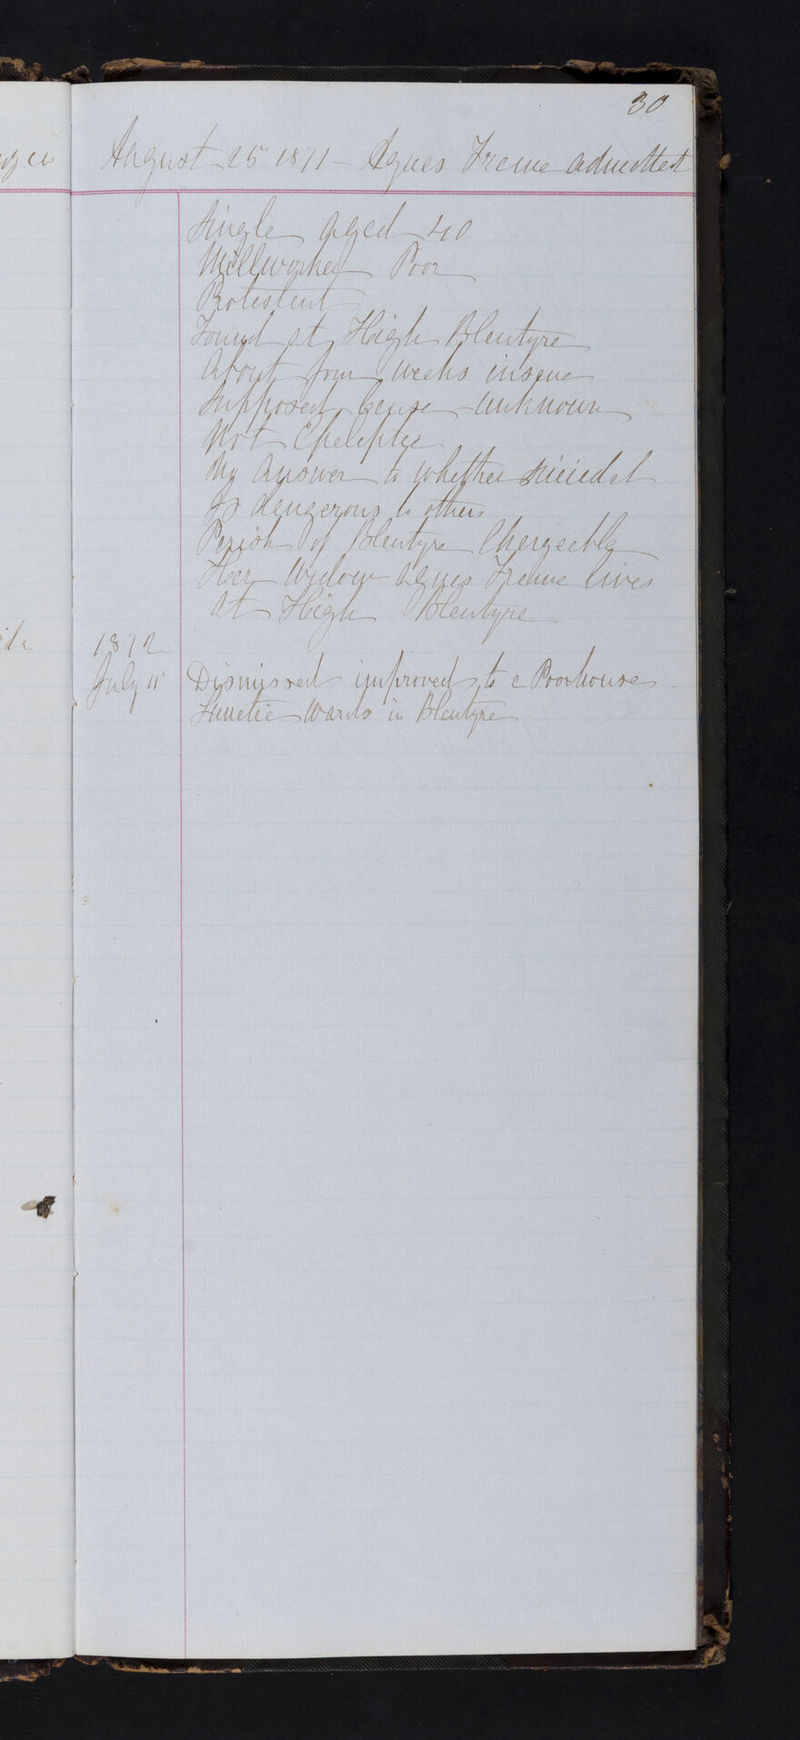 30
August 25 1871 - Agnes Frame admitted
Single aged 40
Millworker Poor
Protestant
Found at High Blantyre
About four weeks insane
Supposed cause unknown
Not Epeleptic
No Answer to whether suicidal
or dangerous to others
Parish of Blantyre Chargeable
Her Widow Agnes Frame lives
at High Blantyre
1872
July 11 Dismissed improved to a Poorhouse
Lunatic Wards in Blantyre